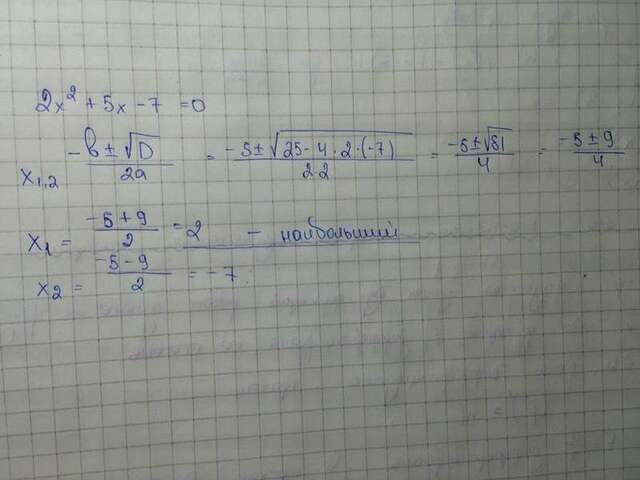 2x² + 5x - 7 = 0
x₁,₂ = -b ± √D / 2a = -5 ± √25 - 4 · 2 · (-7) / 2·2 = -5 ± √81 / 4 = -5 ± 9 / 4
x₁ = -5 + 9 / 2 = 2 - наибольший
x₂ = -5 - 9 / 2 = -7